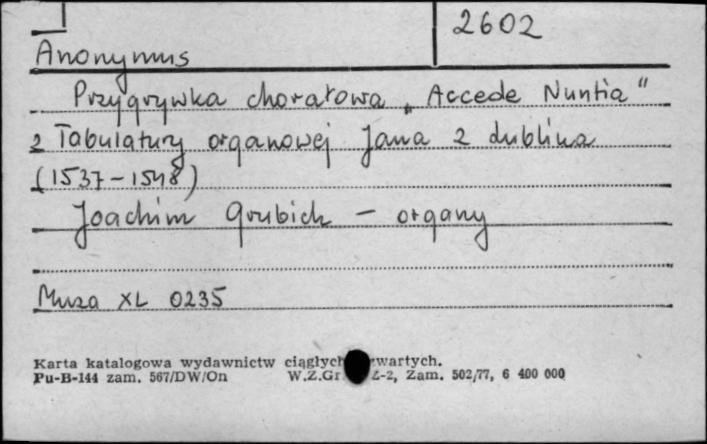 2602
Anonymus
Przygrywka chorałowa „Accede Nuntia"
z Tabulatury organowej Jana z Lublina
(1537-1548)
Joachim Grubich - organy
Muza XL 0235
Karta katalogowa wydawnictw ciągłych zwartych.
Pu-B-144 zam. 567/DW/On W.Z.Gr. Z-2, Zam. 502/77, 6 400 000